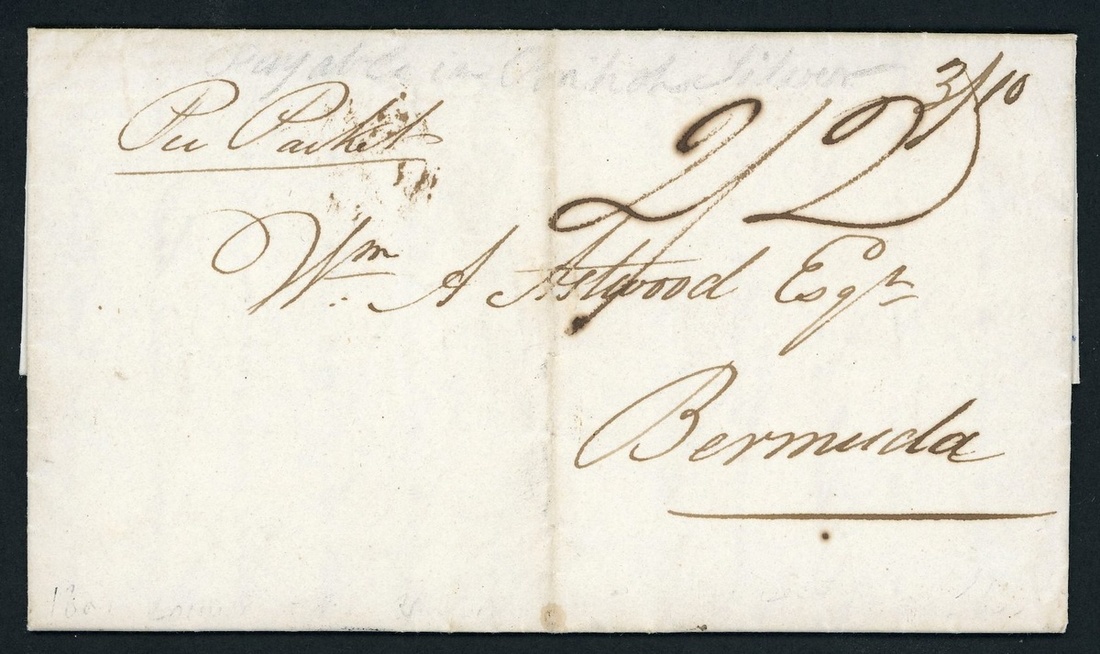 Payable in British Silver
3/10
Per Packet
2/2
Wm. A Astwood Esqr
Bermuda